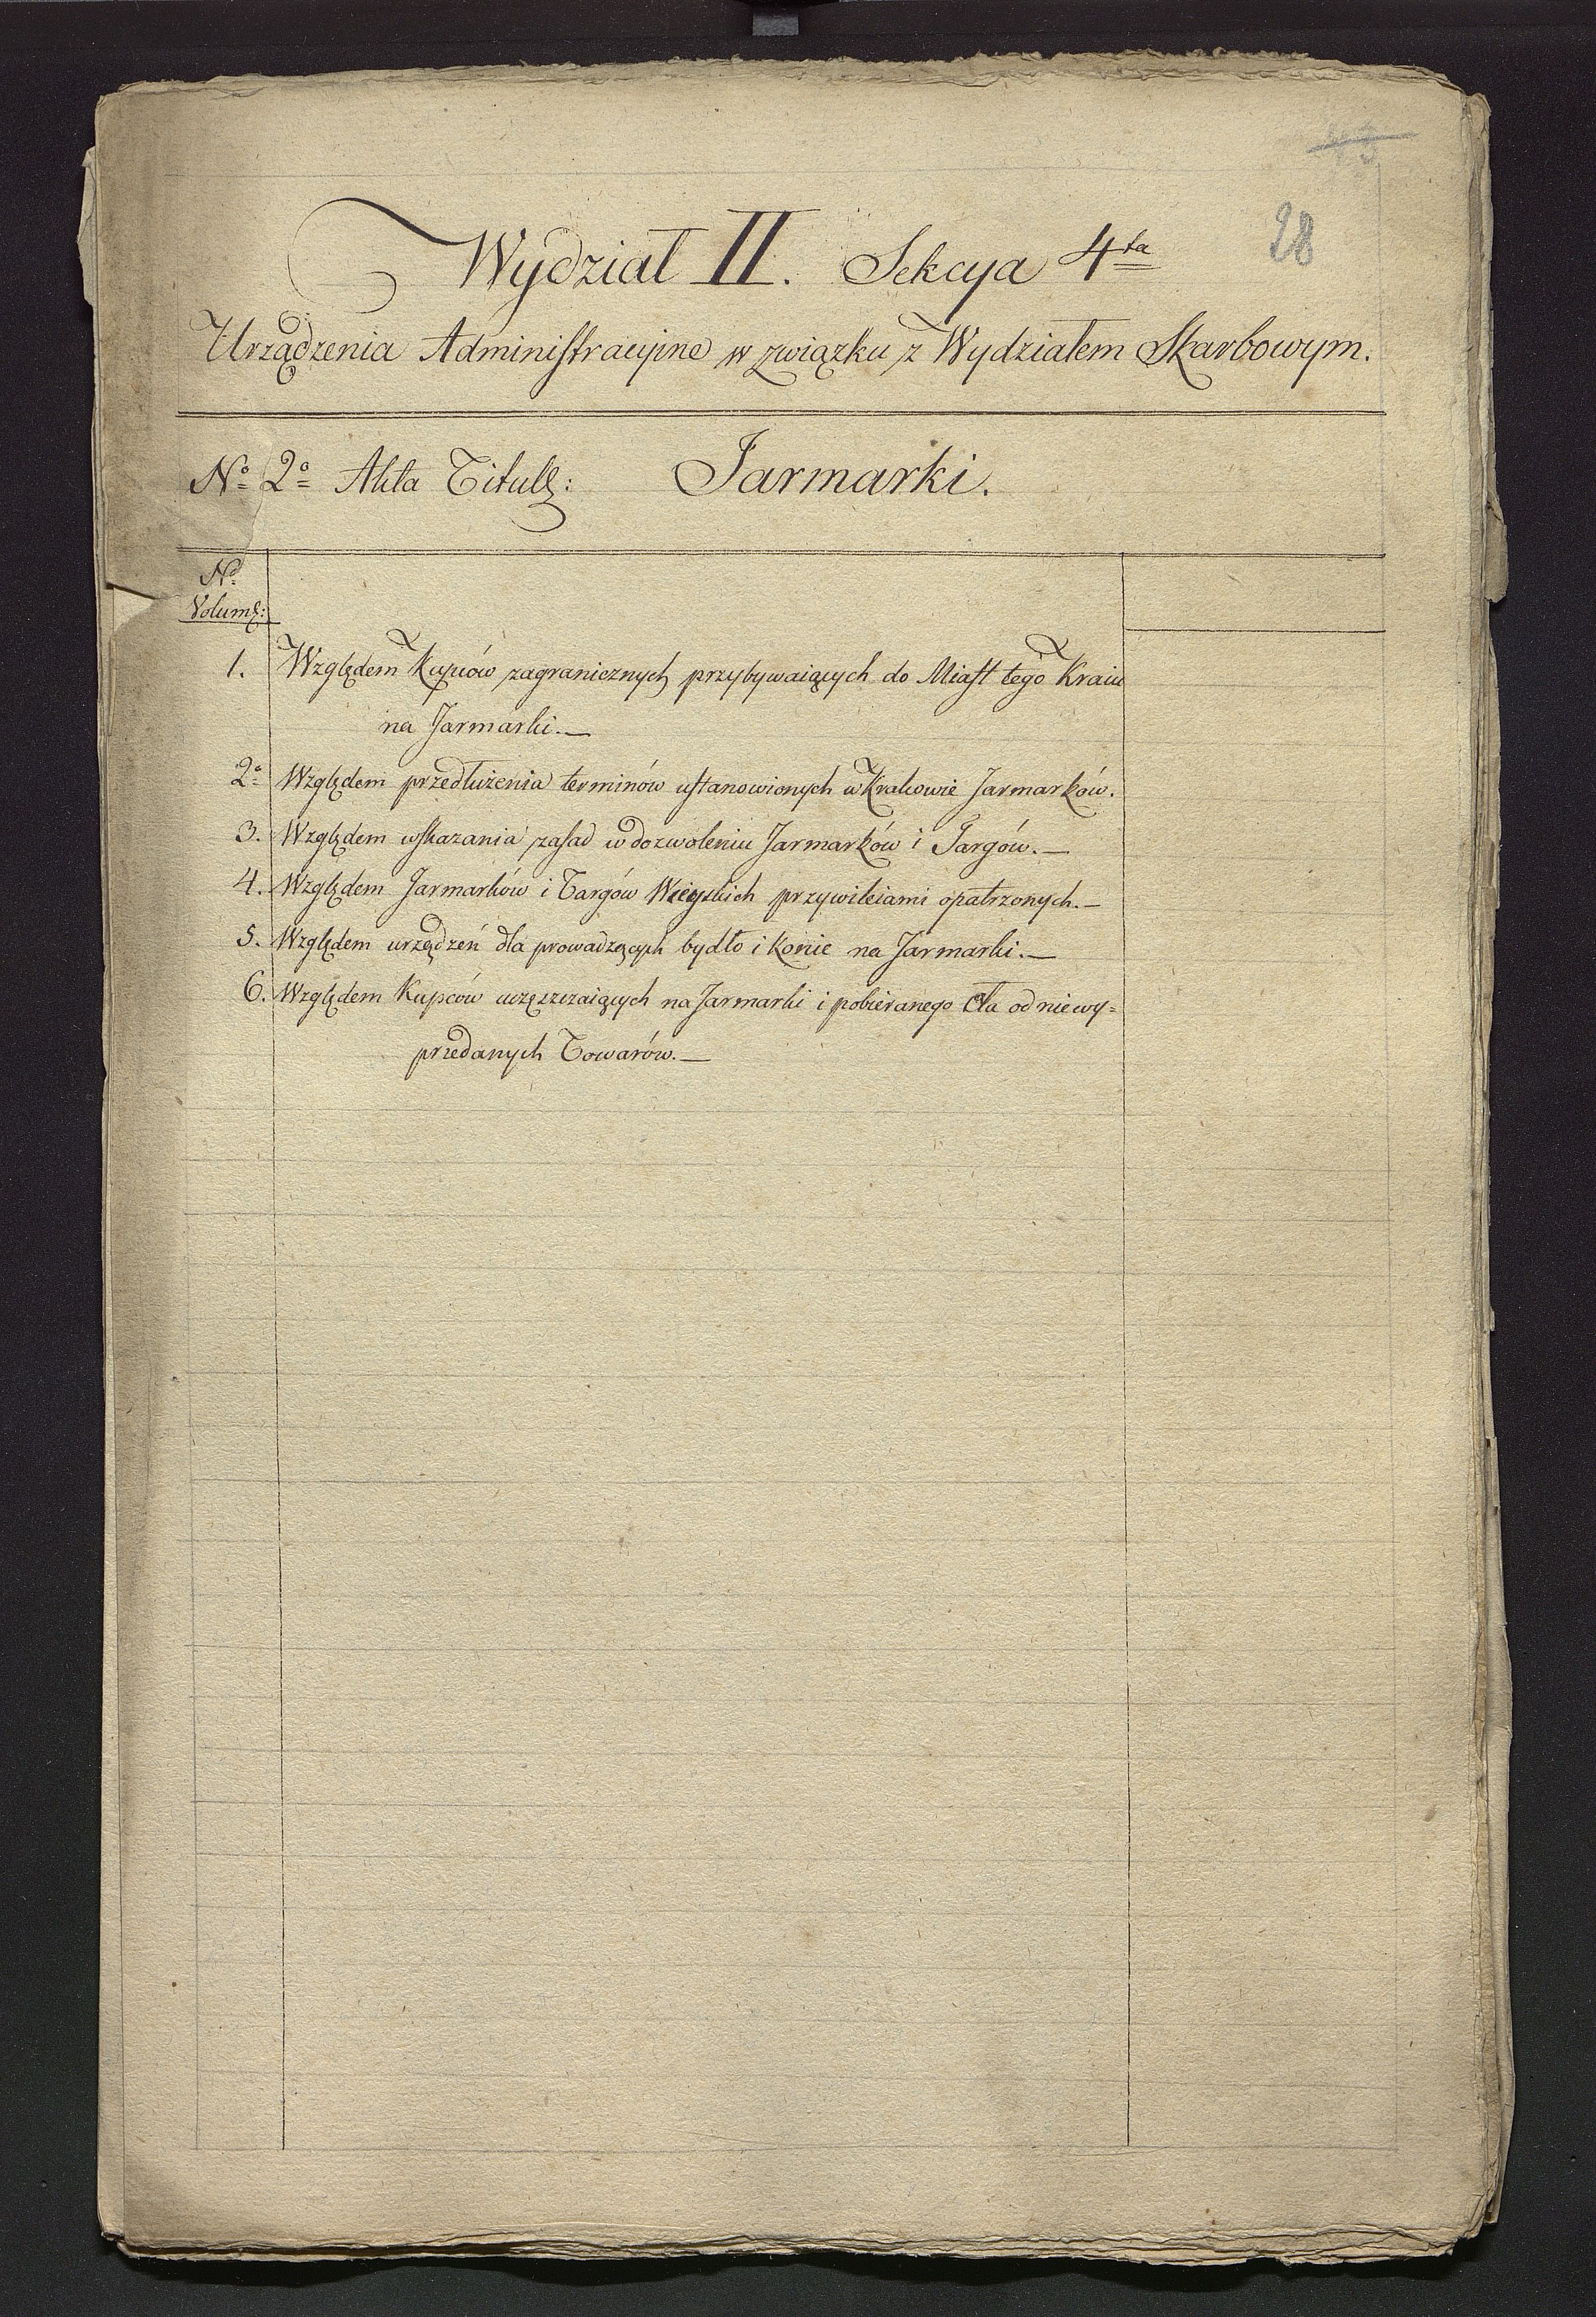 28
Wydział II. Sekcya 4ta
Urządzenia Administracyine w związku z Wydziałem Skarbowym.
No 2o Akta Tituł: Jarmarki.
No
Volum:
1. Względem Kupców zagranicznych przybywaiących do Miast tego Kraiu
na Jarmarki.—
2o Względem przedłużenia terminów ustanowionych w Krakowie Jarmarków.
3. Względem wskazania zasad w dozwoleniu Jarmarków i Targów.—
4. Względem Jarmarków i Targów Wieyskich przywileiami opatrzonych.—
5. Względem urządzeń dla prowadzących bydło i konie na Jarmarki.—
6. Względem Kupców uczęszczaiących na Jarmarki i pobieranego cła od niewy=
przedanych Towarów.—